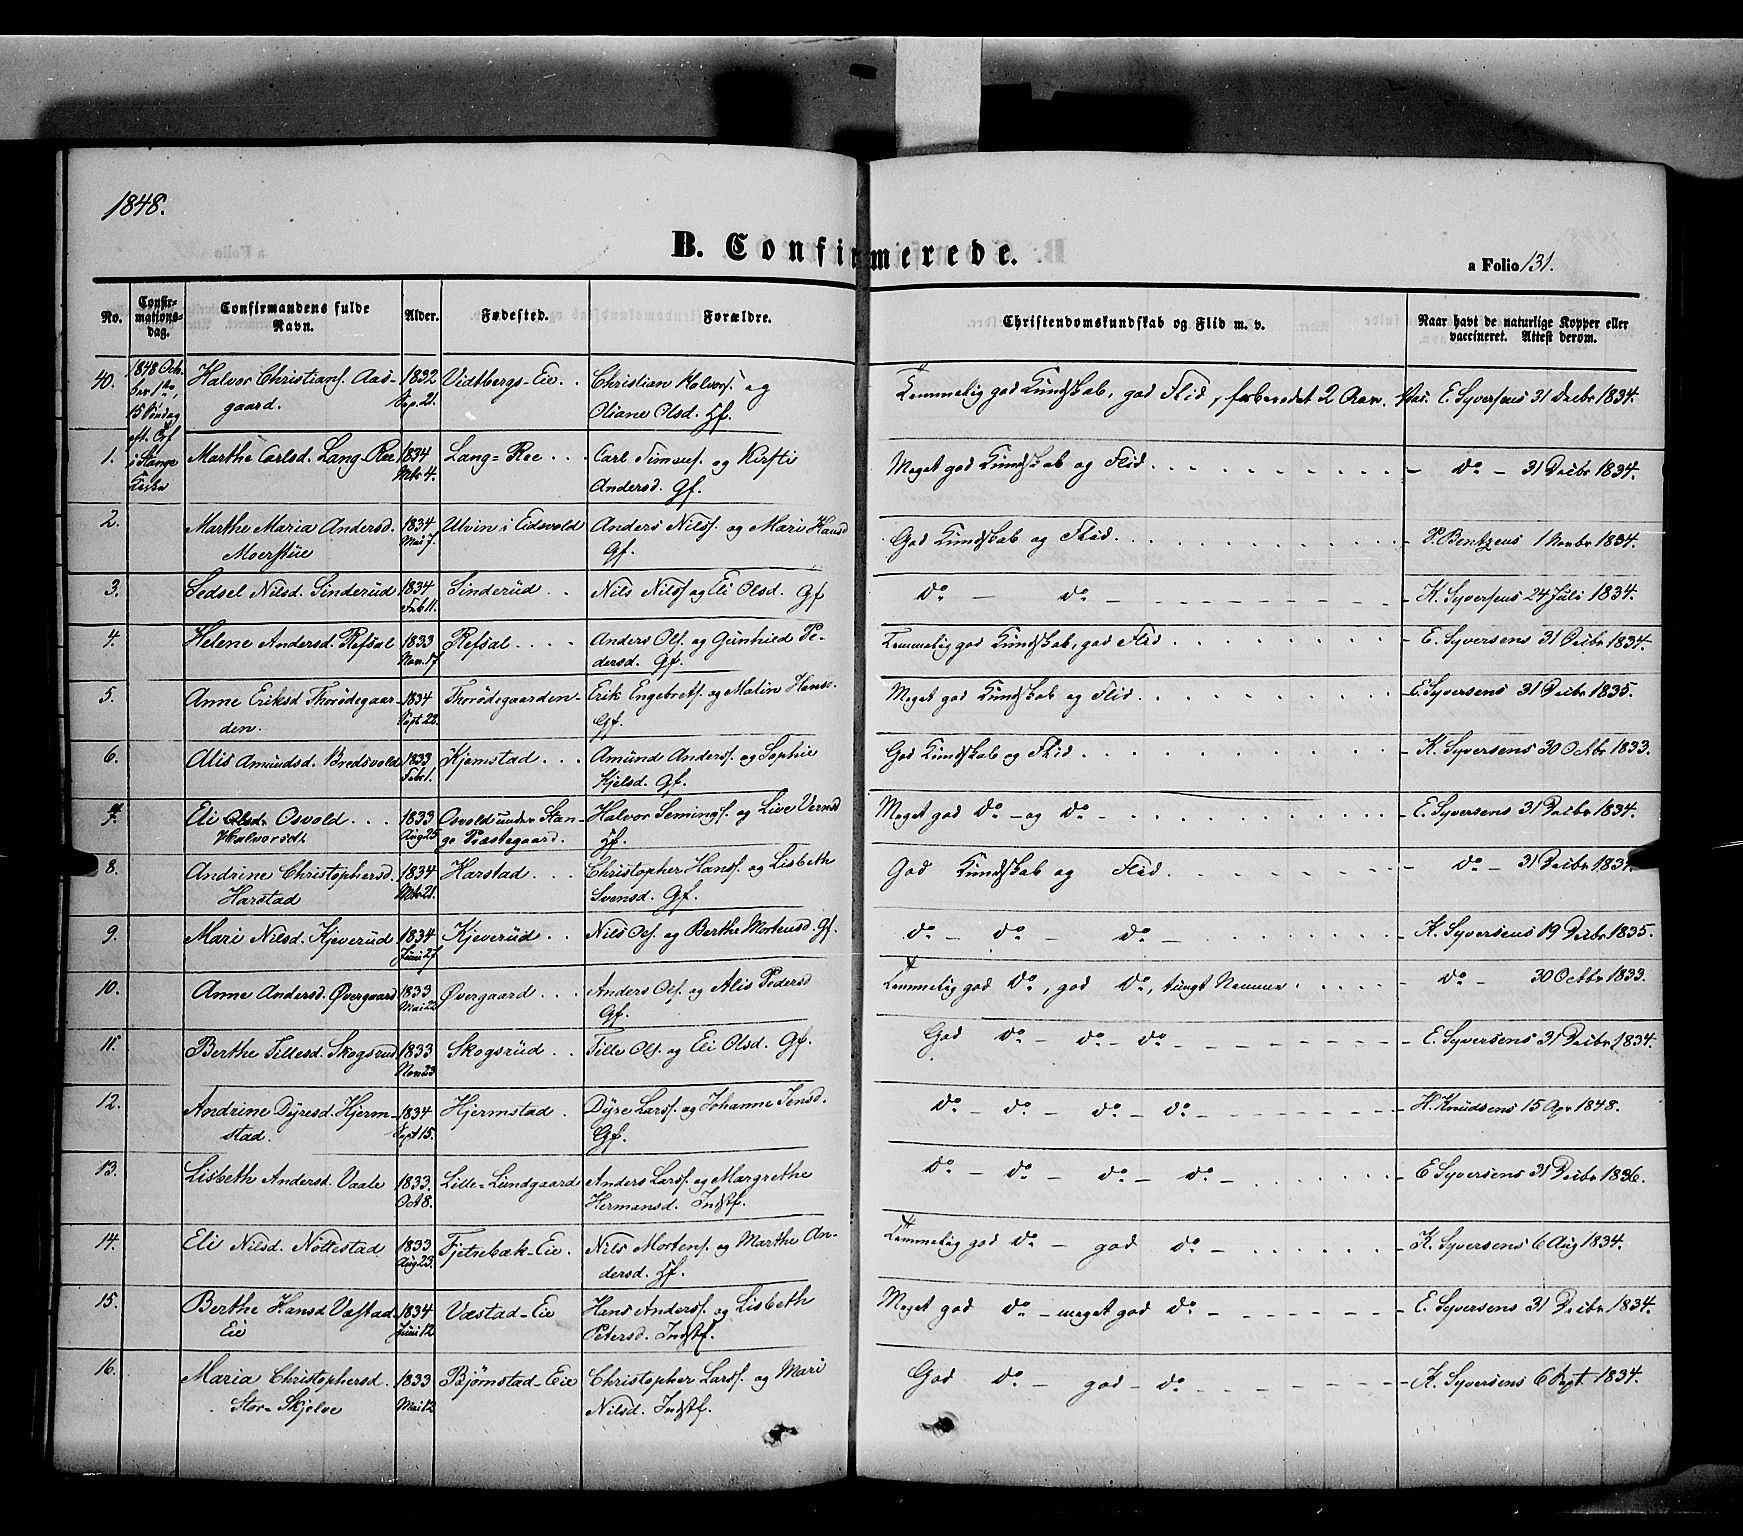 1848.
B. Confirmerede.
a Folio 131.
No.
Confir-
mations-
dag.
Confirmandens fulde
Navn.
Alder.
Fødested.
Forældre.
Christendomskundskab og Flid m. v.
Naar havt de naturlige Kopper eller
vaccineret. Attest derom.
1848 Octo-
ber 1ste,
15 Søndag
eft. Trf
i Stange
Kirke
40. Halvor Christians. Aas- 1832 Vidtbergs-Eie. . Christian Halvors. og Temmelig god Kundskab, god Flid, forberedet 2 Aar. E. Syversens 31 Decbr 1834.
gaard. Sep. 21. Oliane Olsd. Hf.
1. Marthe Carlsd. Lang-Ree 1834 Lang-Ree . . . Carl Simens. og Kirsti Meget god Kundskab og Flid . . . . - do - 31 Decbr 1834.
Mts 4. Andersd. Gf.
2. Marthe Maria Andersd. 1834 Ulvin i Eidsvold Anders Nils. og Mari Hansd God Kundskab og Flid . . . . P. Bentzens 1 Novbr 1834.
Moerstue Mai 7. Gf.
3. Sedsel Nilsd. Sinderud 1834 Sinderud . . Nils Nils. og Eli Olsd. Gf do - do - - - - K. Syversens 24 Juli 1834.
Feb 11.
4. Helene Andersd. Refsal 1833 Refsal . . . . Anders Ols. og Gunhild Pe- Temmelig god Kundskab, god Flid . . . . - E. Syversens 31 Decbr 1834.
Nov. 17 dersd. Gf.
5. Anne Eriksd Thorødegaar- 1834 Thorødegaarden - Erik Engebrets. og Malin Hansd. Meget god Kundskab og Flid . . . . - E. Syversens 31 Decbr 1835.
den. Sept 22. Gf.
6. Alis Amundsd. Bredsvold 1833 Kjemstad . . . Amund Anders. og Sophie God Kundskab og Flid . . . . - K. Syversens 30 Octbr 1833.
Feb 1. Kjelsd. Gf.
7. Eli Olsd. Osvold . . . 1833 Osvold under Stan- Halvor Semings. og Live Vernsd Meget god do - og do - . . . . - E. Syversens 31 Decbr 1834.
Halvorsdt. Aug 25 ge Præstegaard. Hf.
8. Andrine Christophersd. 1834 Harstad . . . Christopher Hans. og Lisbeth God Kundskab og Flid . . . . - do - 31 Decbr 1834.
Harstad Mts 21. Svensd. Gf.
9. Mari Nilsd. Kjeverud 1834 Kjeverud . . Nils Ols. og Berthe Mortensd. Gf. do - do - do - . . . . - K. Syversens 19 Decbr 1835.
Juni 27
10. Anne Andersd. Øvergaard 1833 Øvergaard . . . Anders Ols. og Alis Pedersd Temmelig god do, god do, tungt Nemme . . . . - do - 30 Octbr 1833.
Mai 22 Gf.
11. Berthe Tillesd. Skogsrud 1833 Skogsrud . . Tille Ols. og Eli Olsd. Gf. God do - do - do - . . . . - E. Syversens 31 Decbr 1834.
Nov 23
12. Andrine Dyresd. Hjerm- 1834 Hjermstad . Dyre Lars. og Johanne Jensd. do - do - do - do - - - - H. Knudsens 15 Apr 1848.
stad. Sept 15. Gf.
13. Lisbeth Andersd. Vaale 1833. Lille-Lundgaard Anders Lars. og Margrethe do - do - do - do - . . . . - E Syversens 31 Decbr 1836.
Oct 8. Hermansd. Indstf.
14. Eli Nilsd. Nøttestad 1833 Fjetrebæk-Eie. Nils Mortens. og Marthe An- Temmelig god do - god do - . . . . - K. Syversens 6 Aug 1834.
Aug 23. dersd. Hf.
15. Berthe Hansd Væstad 1834 Væstad-Eie Hans Anders. og Lisbeth Meget god do - meget god do - - - - E. Syversens 31 Decbr 1834.
Eie Juni 12 Petersd. Indstf.
16. Maria Christophersd. 1833 Bjørnstad-Eie Christopher Lars. og Mari God do - god - do - - - - K. Syversens 6 Sept. 1834.
Stor-Skjelve Mai 12 Nilsd. Indstf.